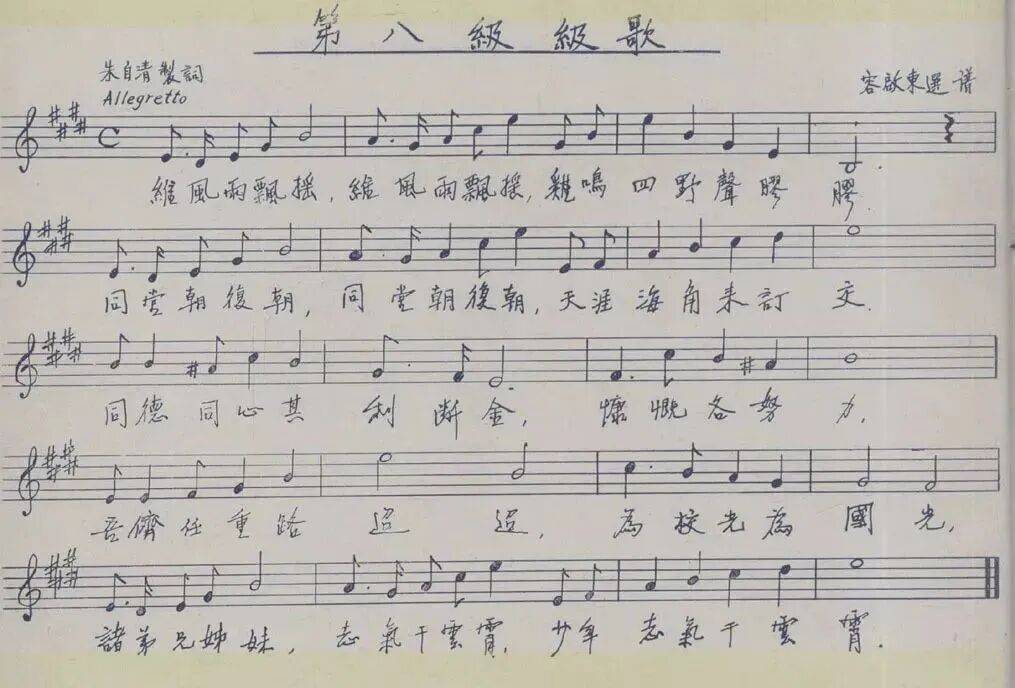 第八級級歌
朱自清製詞
Allegretto
容啟東選谱
維風雨飄摇,維風雨飄摇,雞鳴四野聲膠膠.
同堂朝復朝,同堂朝復朝,天涯海角来訂交.
同德同心其利斷金,慷慨各努力,
吾儕任重路迢迢,為校光為國光,
諸弟兄姊妹,志氣干雲霄,少年志氣干雲霄.